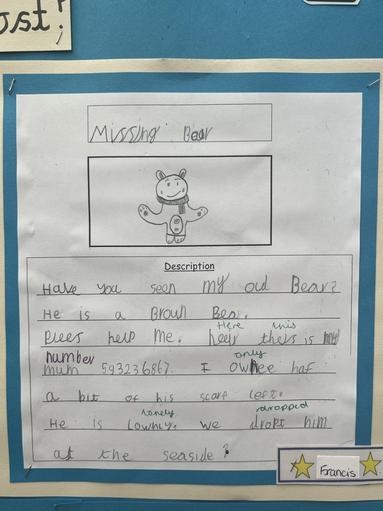 ost!
Missing Bear
Description
Have you seen my old Bear?
He is a Broun Ber.
Here this
plees help me. heer thers is my
number only
mum 593236867. I ownee haf
a bit of his scarf left.
lonely dropped
He is lownly. we dropt him
at the seaside?
Francis